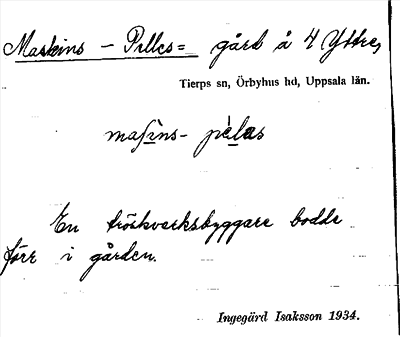 Maskins - Pelles= gård å 4 Yttre,
Tierps sn, Örbyhus hd, Uppsala län.
maſìns- pèlas
En tröskverksbyggare bodde
förr i gården.
Ingegärd Isaksson 1934.